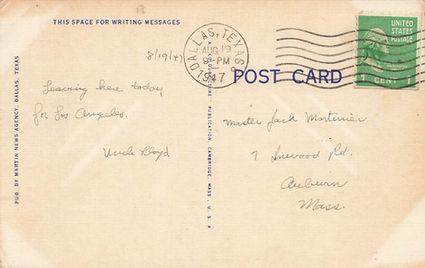 THIS SPACE FOR WRITING MESSAGES
8/19/47
Leaving here today
for Los Angeles.
Uncle Lloyd
PUB. BY MARTIN NEWS AGENCY, DALLAS, TEXAS
DALLAS, TEXAS
AUG 19
9-PM
1947
UNITED
STATES
POSTAGE
1 CENT 1
POST CARD
PUBLICATION, CAMBRIDGE, MASS., U. S. A.
Master Jack Mortimer
7 Inwood Rd.
Auburn
Mass.